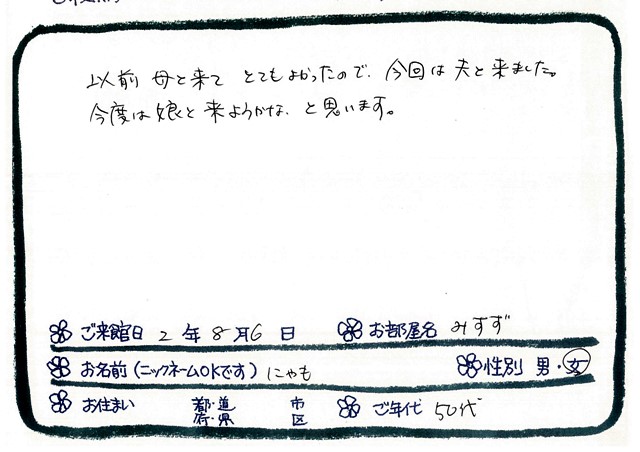 以前 母と来て とてもよかったので、今回は 夫と来ました。
今度は 娘と 来ようかな、と思います。
ご来館日 2 年 8 月 6 日 お部屋名 みすず
お名前(ニックネームOKです) にゃも 性別 男・女
お住まい 都・道 市
府・県 区
ご年代 50代